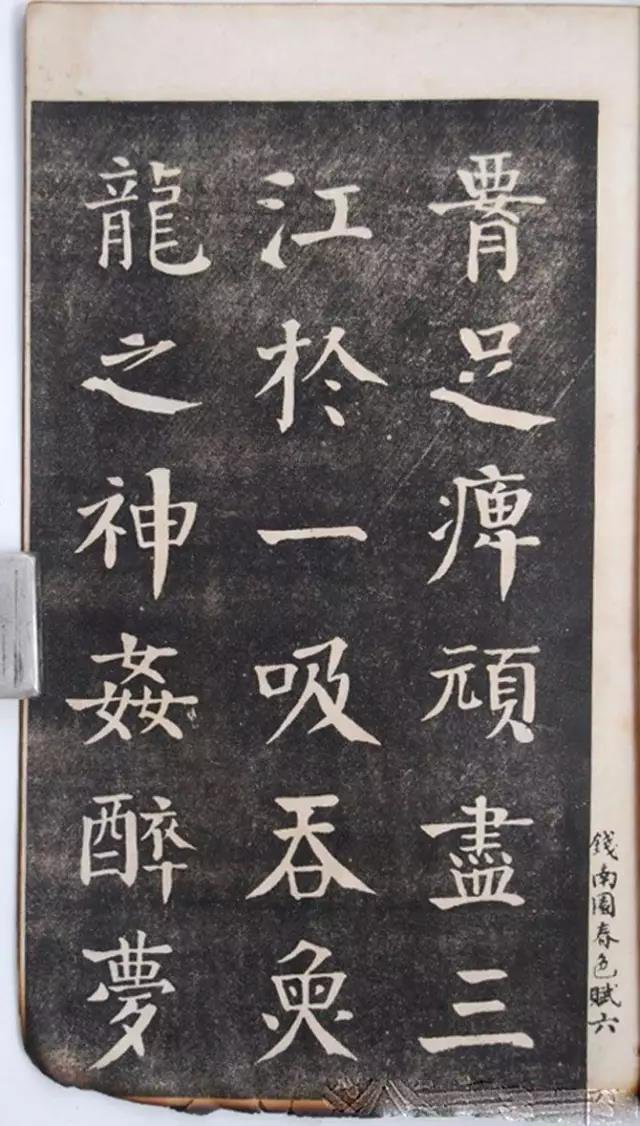 腰足痺頑盡三
江於一吸吞魚
龍之神姦醉夢
錢南園春色賦六